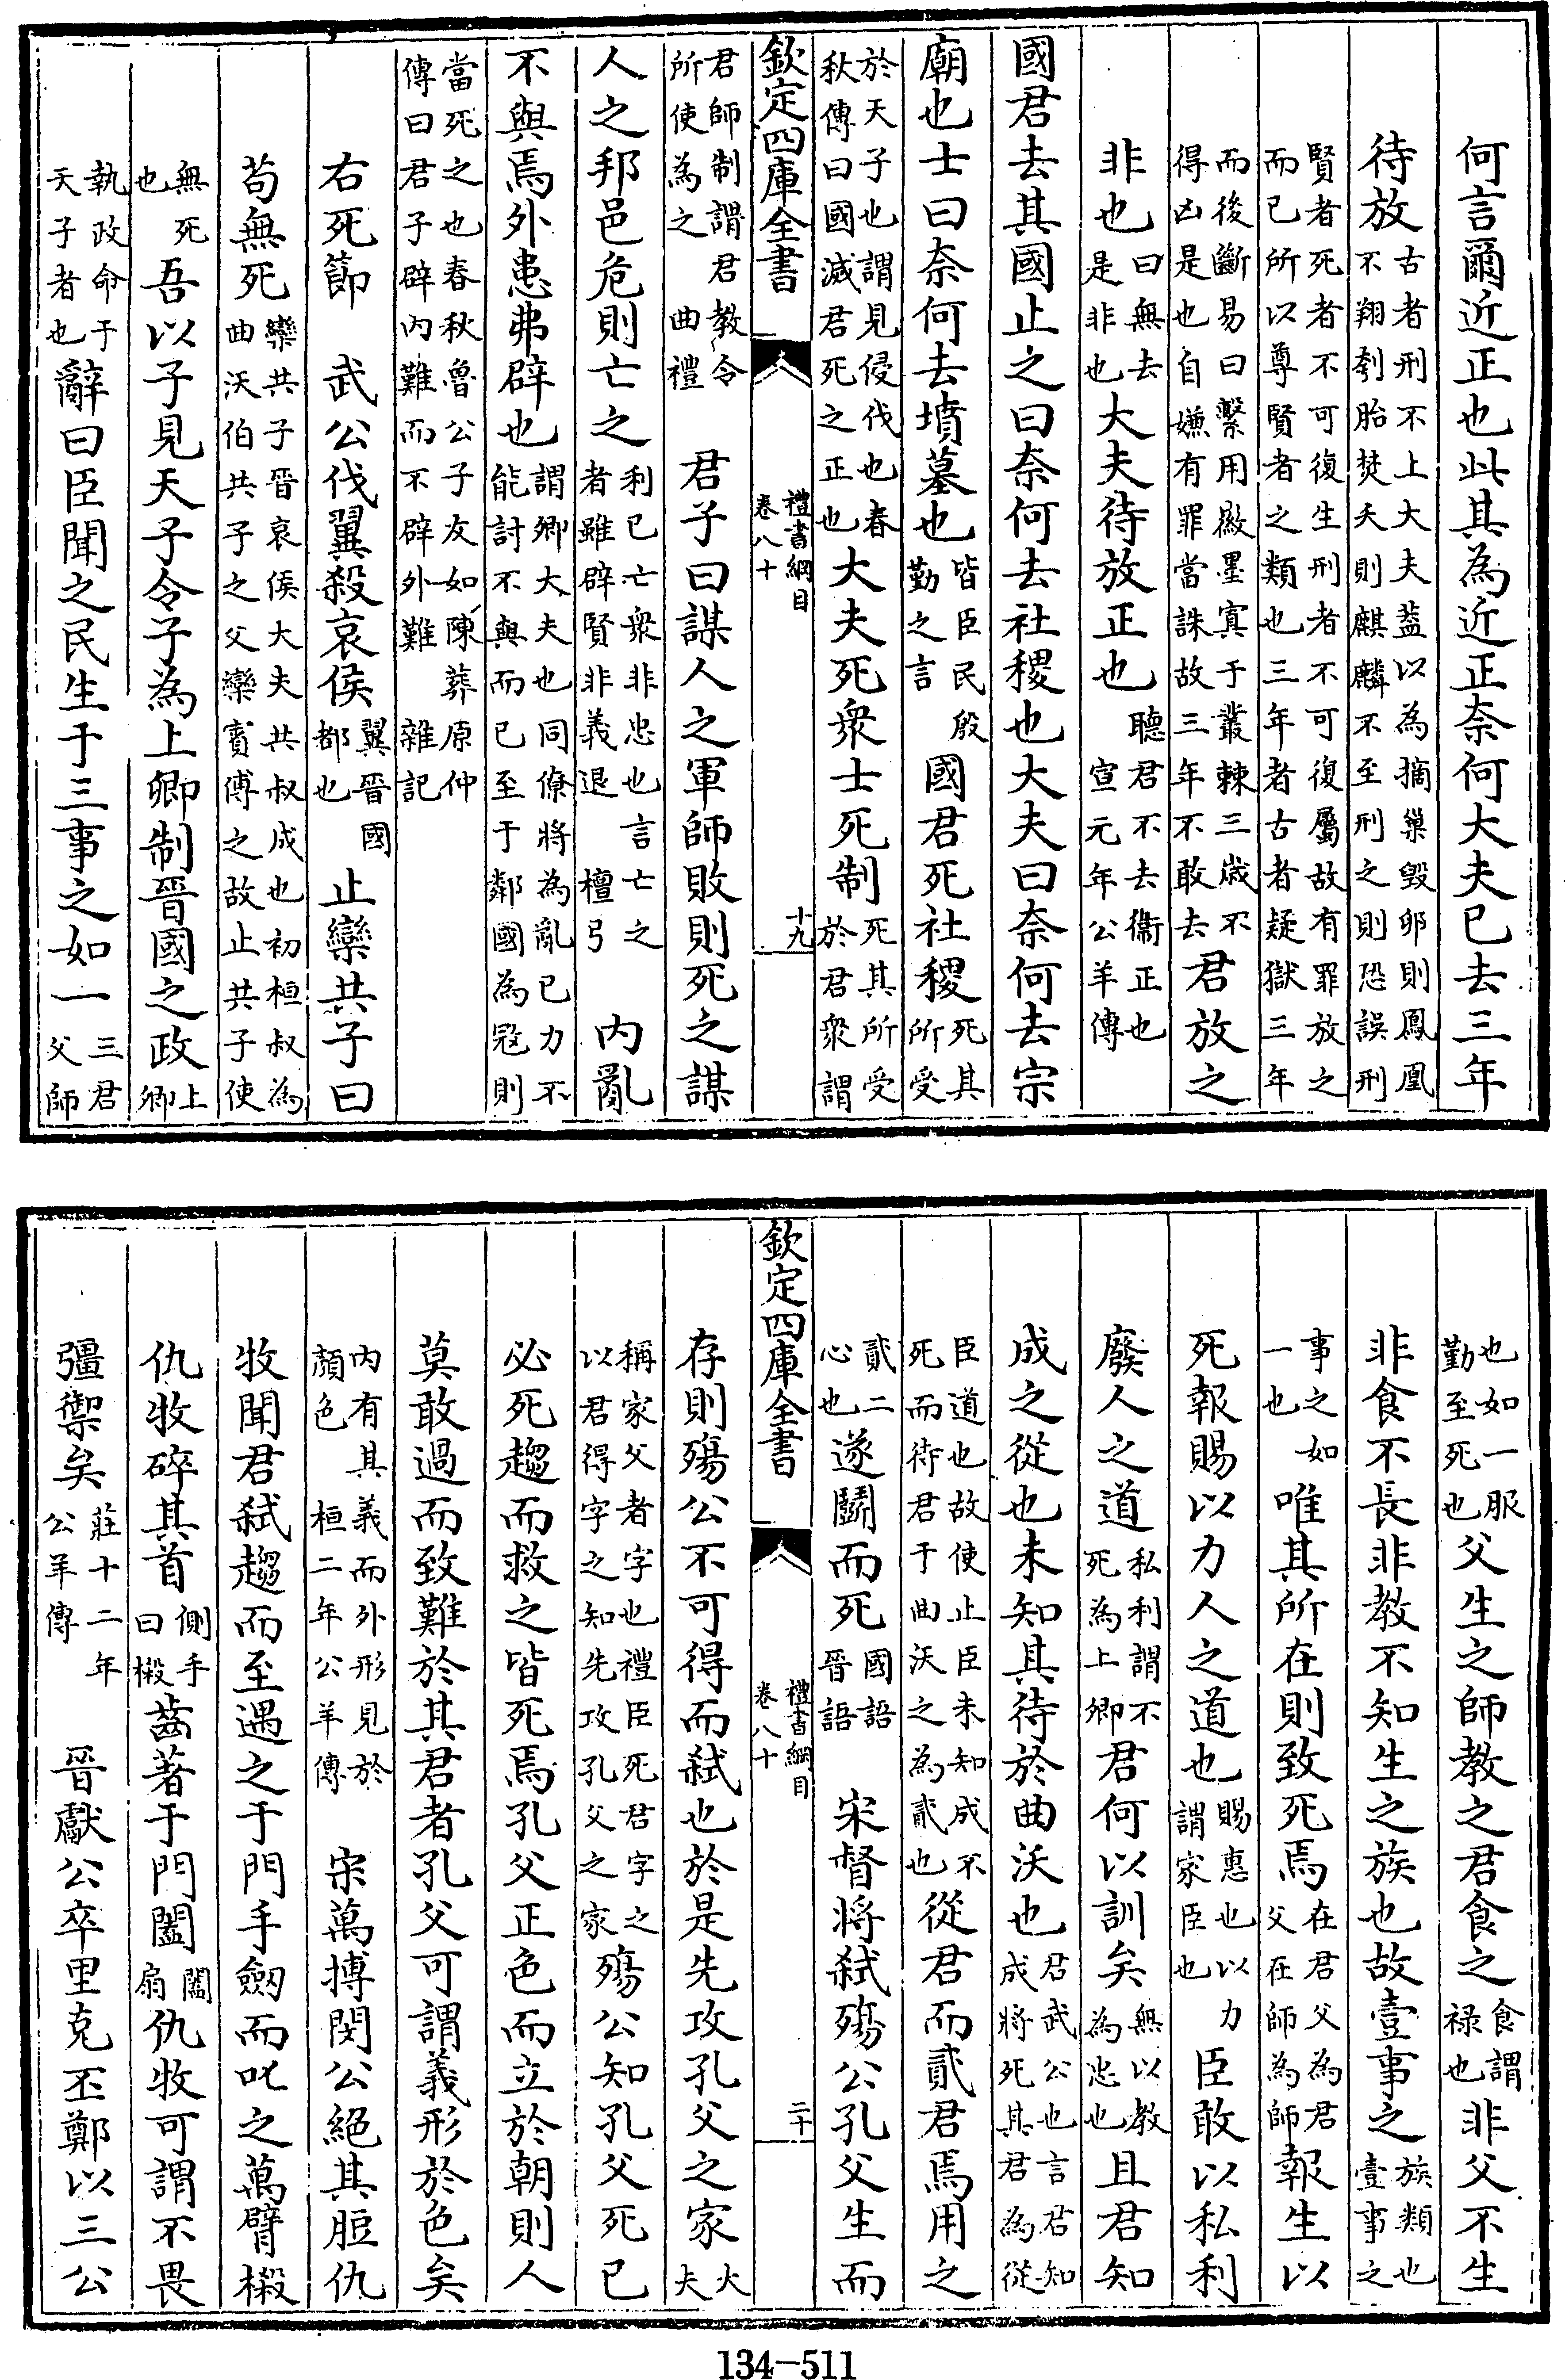 何言爾近正也此其為近正奈何大夫已去三年
待放古者刑不上大夫蓋以為摘巢毀卵則鳳凰不翔刳胎焚夭則麒麟不至刑之則恐誤刑
賢者死者不可復生刑者不可復屬故有罪放之而已所以尊賢者之類也三年者古者疑獄三年
而後斷易曰繫用徽墨寘于叢棘三歲不得凶是也自嫌有罪當誅故三年不敢去君放之
非也曰無去是非也大夫待放正也聽君不去衞正也宣元年公羊傳
國君去其國止之曰奈何去社稷也大夫曰奈何去宗
廟也士曰奈何去墳墓也皆臣民殷勤之言國君死社稷死其所受
於天子也謂見侵伐也春秋傳曰國滅君死之正也大夫死衆士死制死其所受於君衆謂
欽定四庫全書 禮書綱目卷八十 十九
君師制謂君教令所使為之曲禮君子曰謀人之軍師敗則死之謀
人之邦邑危則亡之利已亡衆非忠也言亡之者雖辟賢非義退檀弓内亂
不與焉外患弗辟也謂卿大夫也同僚將為亂已力不能討不與而已至于鄰國為冦則
當死之也春秋魯公子友如陳葬原仲傳曰君子辟内難而不辟外難雜記
右死節 武公伐翼殺哀侯翼晉國都也止欒共子曰
苟無死欒共子晉哀侯大夫共叔成也初桓叔為曲沃伯共子之父欒賓傅之故止共子使
無死也吾以子見天子令子為上卿制晉國之政上卿
執政命于天子者也辭曰臣聞之民生于三事之如一三君父師
也如一服勤至死也父生之師教之君食之食謂禄也非父不生
非食不長非教不知生之族也故壹事之族類也壹事之
事之如一也唯其所在則致死焉在君父為君父在師為師報生以
死報賜以力人之道也賜惠也以力謂家臣也臣敢以私利
廢人之道私利謂不死為上卿君何以訓矣無以教為忠也且君知
成之從也未知其待於曲沃也君武公也言君知成將死其君為從
臣道也故使止臣未知成不死而待君于曲沃之為貳也從君而貳君焉用之
貳二心也遂鬭而死國語晉語宋督將弑殤公孔父生而
欽定四庫全書 禮書綱目卷八十 二十
存則殤公不可得而弑也於是先攻孔父之家大夫
稱家父者字也禮臣死君字之以君得字之知先攻孔父之家殤公知孔父死已
必死趨而救之皆死焉孔父正色而立於朝則人
莫敢過而致難於其君者孔父可謂義形於色矣
内有其義而外形見於顏色桓二年公羊傳宋萬搏閔公絕其脰仇
牧聞君弑趨而至遇之于門手劔而叱之萬臂摋
仇牧碎其首側手曰摋齒著于門闔闔扇仇牧可謂不畏
彊禦矣莊十二年公羊傳晉獻公卒里克丕鄭以三公
134-511